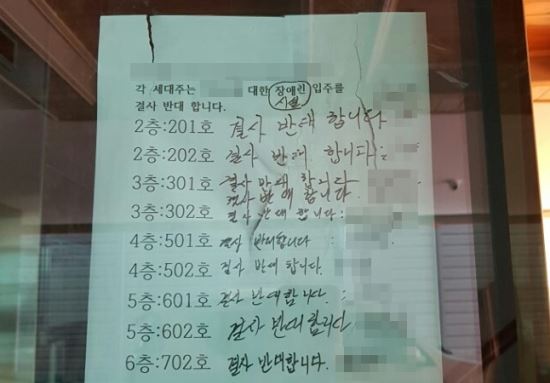 각 세대주는 대한 장애린 입주를
시설
결사 반대 합니다.
2층:201호 결사 반대 합니다
2층:202호 결사 반대 합니다:
3층:301호 결사 반대 합니다
결사 반대 합니다
3층:302호 결사 반대 합니다:
4층:501호 결사 반대합니다 :
4층:502호 결사 반대 합니다.
5층:601호 결사 반대합니다. :
5층:602호 결사 반대 합니다
6층:702호 결사 반대합니다.